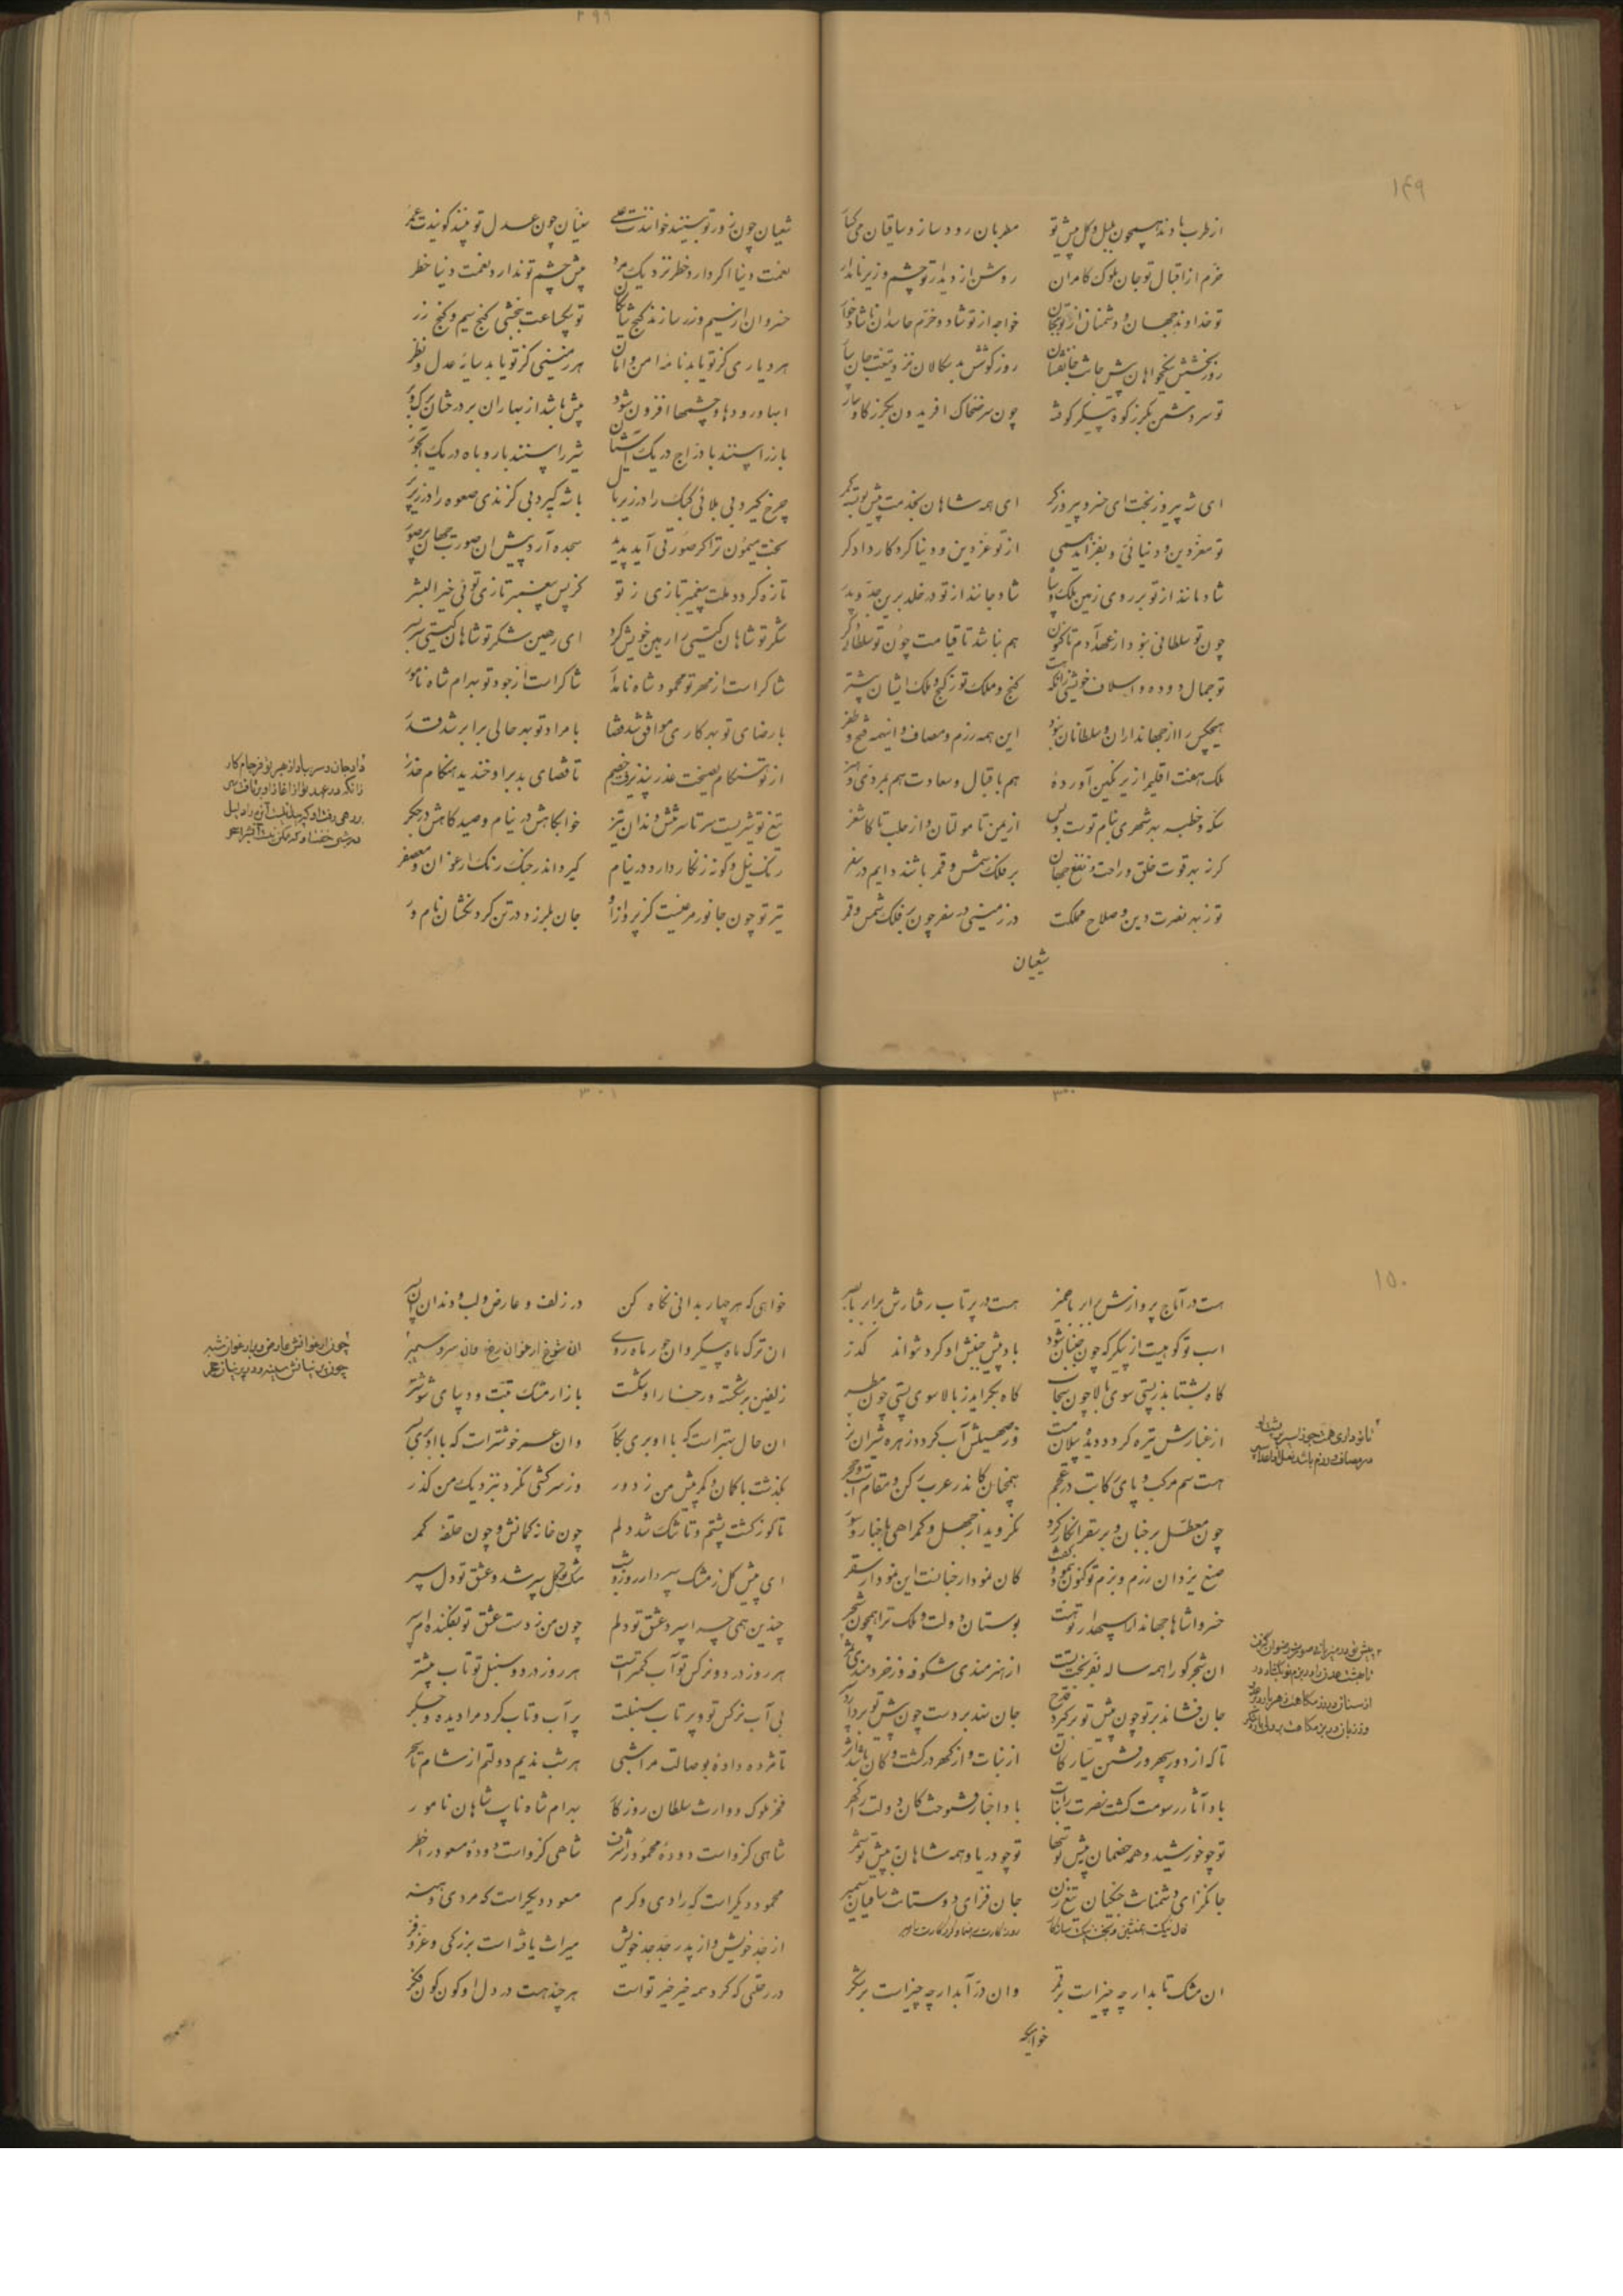 ۲۹۹
۱۴۹
از طرب بادند همچون بلبل و گل پیش تو مطربان رود ساز و ساقیان می
خرم از اقبال تو جان ملوک کامران روشن از دیدار تو چشم وزیر نامدار
تو خداوند جهان و دشمنان از تو خواجه از تو شاد و خرم حاسدان ناشاد خوار
روز بخشش نیکخواهان پیش روز کوشش بدسکالان نزد تیغت جان سپار
تو سر دشمن بگرز کوه پیکر کوفته چون سر ضحاک افریدون بگرز گاوسار
ای شه پیروزبخت ای خسرو پیروزگر ای همه شاهان بخدمت پیش تو بسته کمر
تو معز دین و دنیائی و بفزاید همی از تو عز دین و دنیا کردگار دادگر
شادمانند از تو بر روی زمین ملک و سپاه شاد جانند از تو در خلد برین جد و پدر
چون تو سلطانی نبود از عهد آدم تاکنون هم نباشد تا قیامت چون تو سلطان دگر
تو جمال دوده و اسلاف خویشی زانکه هست گنج و ملک تو ز گنج و ملک ایشان بیشتر
هیچکس را از جهانداران و سلطانان نبود این همه رزم و مصاف و اینهمه فتح و ظفر
ملک هفت اقلیم را زیر نگین آورده هم باقبال و سعادت هم بمردی و هنر
سکه و خطبه بهر شهری بنام توست و بس از یمن تا مولتان و از حلب تا کاشغر
گر نه بهر قوت خلق و راحت و نفع جهان بر فلک شمس و قمر باشند دایم در سفر
تو ز بهر نصرت دین و صلاح مملکت در زمینی در سفر چون بر فلک شمس و قمر
شیعیان
شیعیان چون زور تو بینند خوانندت علی سنیان چون عدل تو بینند گویندت عمر
نعمت دنیا اگر دارد خطر نزدیک مرد پیش چشم تو ندارد نعمت دنیا خطر
خسروان از سیم و زر سازند گنج شایگان تو بیکساعت بخشی گنج سیم و گنج زر
هر دیاری کز تو یابد نامه امن و امان هر زمینی کز تو یابد سایه عدل و نظر
ابها و رودها و چشمها افزون شود بیش باشد از بهاران بر درختان برگ و بر
باز را بینند با دراج در یک آشیان شیر را بینند با روباه در یک آبخور
چرخ گیرد بی بلائی کبک را در زیر بال باشه گیرد بی گزندی صعوه را در زیر پر
بخت میمون ترا گر صورتی آید پدید سجده آرد پیش ان صورت جهان پر صور
تازه گردد ملت پیغمبر تازی ز تو کز پس پیغمبر تازی توئی خیر البشر
شکر تو شاهان گیتی را رهین خویش کرد ای رهین شکر تو شاهان گیتی سربسر
شاکر است از مهر تو محمود شاه نامدار شاکر است از جود تو بهرام شاه نامور
با رضای تو بهر کاری موافق شد قضا با مراد تو بهر حالی برابر شد قدر
از تو هنگام نصیحت عذر نپذیرفت خصم تا قضای بد برا و خندید هنگام حذر
تیغ تو شیریست سر تا سر و دندان تیز خوابگاهش در نیام و صیدگاهش در جگر
رنگ نیل و گونه زنگار دارد در نیام گیرد اندر جنگ رنگ ارغوان و معصفر
تیر تو چون جانور مرغیست کز پرواز او جان بلرزد در تن گردنکشان نام ور
۳۰۰
۳۰۱
۱۵۰
هست در آماج پروازش برابر هست در پرتاب رفتارش برابر با بصر
اسب تو کوهیست از پیکر که چون جنبان شود باد پیش جنبش او کرد نتواند گذر
گاه بشتابد ز پستی سوی بالا چون سحاب گاه بگراید ز بالا سوی پستی چون مطر
از غبارش تیره گردد دیده پیلان مست وز صهیلش آب گردد زهره شیران نر
هست سم مرکب و پای رکابت در عجم همچنان کاندر عرب رکن و مقام است و حجر
چون معطل بر جنان و بر سقر انکار کرد نگروید از جهل و گمراهی باخبار و سور
صنع یزدان رزم و بزم تو کنون بنمود و گفت کان نمودار جنانست این نمودار سقر
خسروا شاها جهاندارا سپهدار تو هست بوستان دولت و ملک ترا همچون شجر
ان شجر کو را همه ساله ز هنرمندی شکوفه وز خردمندی ثمر
جان فشاند بر تو چون پیش تو بر گیرد قدح جان نهد بر دست چون پیش تو بردارد
تا که از دور سپهر و رفتن سیارگان از نبات و از گهر در کشت و کان باشد اثر
باد آثار رسومت کشت نصرت را نبات باد اخبار فتوحت کان دولت را گهر
تو چو خورشید و همه خصمان پیش تو سها تو چو دریا و همه شاهان پیش تو شمر
جانگزای دشمنانت جنگیان تیغ زن جان فزای دوستانت ساقیان سیمبر
ان مشک تابدار چه چیز است بر قمر وان در آبدار چه چیز است بر شکر
خواهیکه
خواهی که هر چهار بدانی نگاه کن در زلف و عارض و لب و دندان آن پسر
ان ترک ماه پیکر وان حور ماه روی ان شوخ ارغوان رخ وان سرو سیمبر
زلفین برشکسته و رخسار او شکست بازار مشک تبت و دیبای شوشتر
ان حال بهتر است که با او بری بکار وان عمر خوشتر است که با او بری بسر
بگذشت با کمان و کمر پیش من ز دور وز سرکشی نکرد بنزدیک من گذر
تا کوژ گشت پشتم و تا تنگ شد دلم چون خانه کمانش و چون حلقه کمر
ای پیش گل ز مشک سپر دار روز و شب
چندین همی چه را سپرد عشق تو دلم چون من ز دست عشق تو بفکنده ام سپر
هر روز در دو نرگس تو آب کمتر است هر روز در دو سنبل تو تاب بیشتر
بی آب نرگس تو و پر تاب سنبلت پر آب و تاب کرد مرا دیده و جگر
تا مژده داده بوصالت مرا شبی هر شب ندیم دولتم از شام تا سحر
فخر ملوک و وارث سلطان روزگار بهرام شاه نایب شاهان نامور
شاهی کزو است دوده محمود را شرف شاهی کزو است دوده مسعود را خطر
محمود دیگر است که رادی و کرم مسعود دیگر است که مردی و هنر
از جد خویش و از پدر جد جد خویش میراث یافته است بزرگی و عز و فر
در رحلتی که کرد همه خیر خیر تو است هر چند هست در دل او گون گون فکر